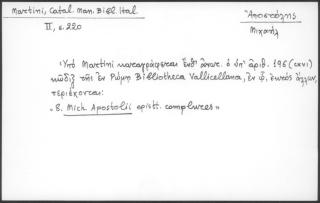 Martini, Catal. Man. Bibl. Ital.
II, σ. 220
Ἀποστόλης
Μιχαήλ
Ὑπὸ Martini καταγράφεται ἔνθ' ἀνωτ. ὁ ὑπ' ἀριθ. 196 (CXVI)
κῶδιξ τῆς ἐν Ρώμῃ Bibliotheca Vallicellana, ἐν ᾧ, ἐκτὸς ἄλλων,
περιέχονται:
"8. Mich. Apostolii epistt. complures"